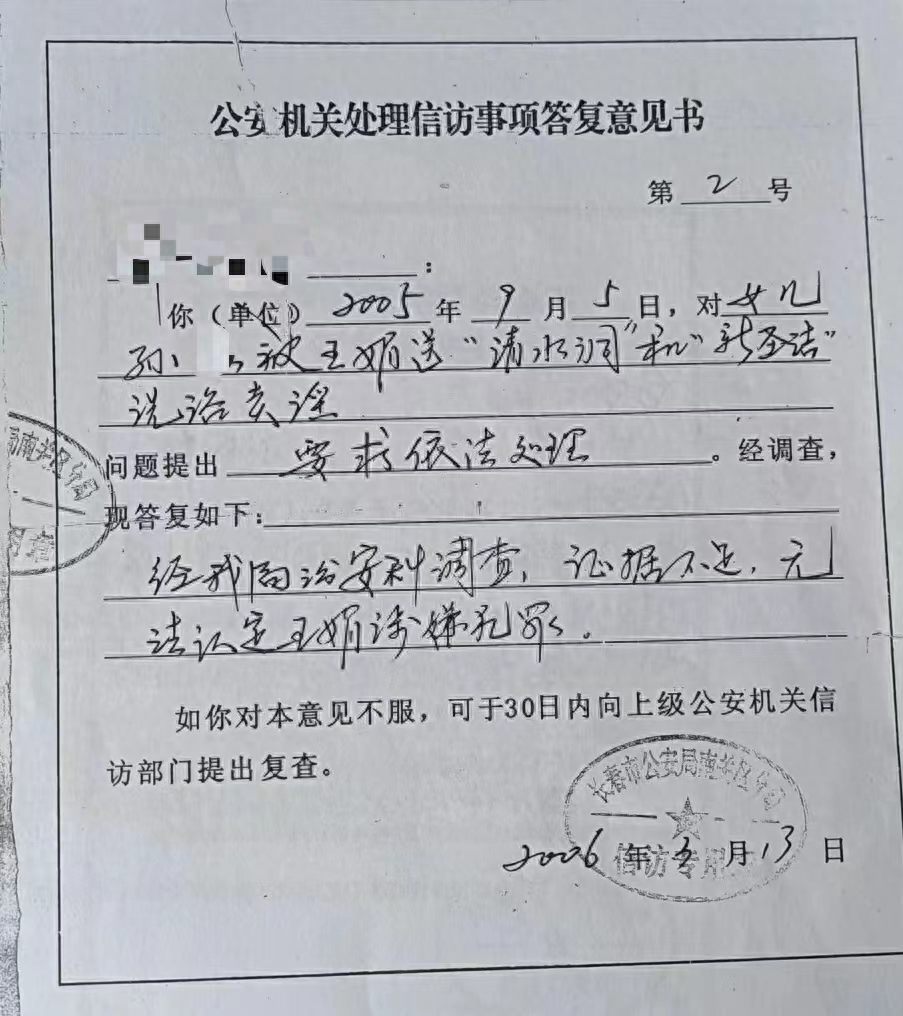 公安机关处理信访事项答复意见书
第 2 号
:
你（单位）2005年9月5日，对女儿
孙 被王媚送“清水润”和“新圣洁”
洗浴卖淫
问题提出 要求依法处理 。经调查，
现答复如下：
经我局治安科调查，证据不足，无
法认定王媚涉嫌犯罪。
如你对本意见不服，可于30日内向上级公安机关信
访部门提出复查。
长春市公安局南关区分局
信访专用
2006年 月13日
局南关区分局
用章